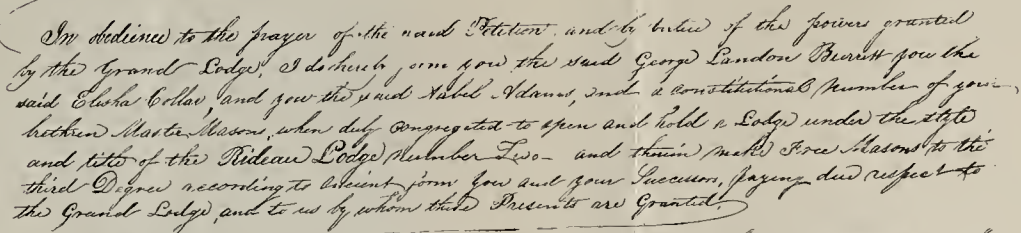 In obedience to the prayer of the said Petition and by virtue of the powers granted
by the Grand Lodge, I do hereby give you the said George Landon Burritt you the
said Elisha Collar, and you the said Aabel Adams, and a constitutional Number of your
brethren Master Masons, when duly congregated to open and hold a Lodge under the style
and title of the Rideau Lodge Number Two - and therein make Free Masons to the
third Degree according to ancient form you and your Successors, paying due respect to
the Grand Lodge, and to us by whom these Presents are Granted.